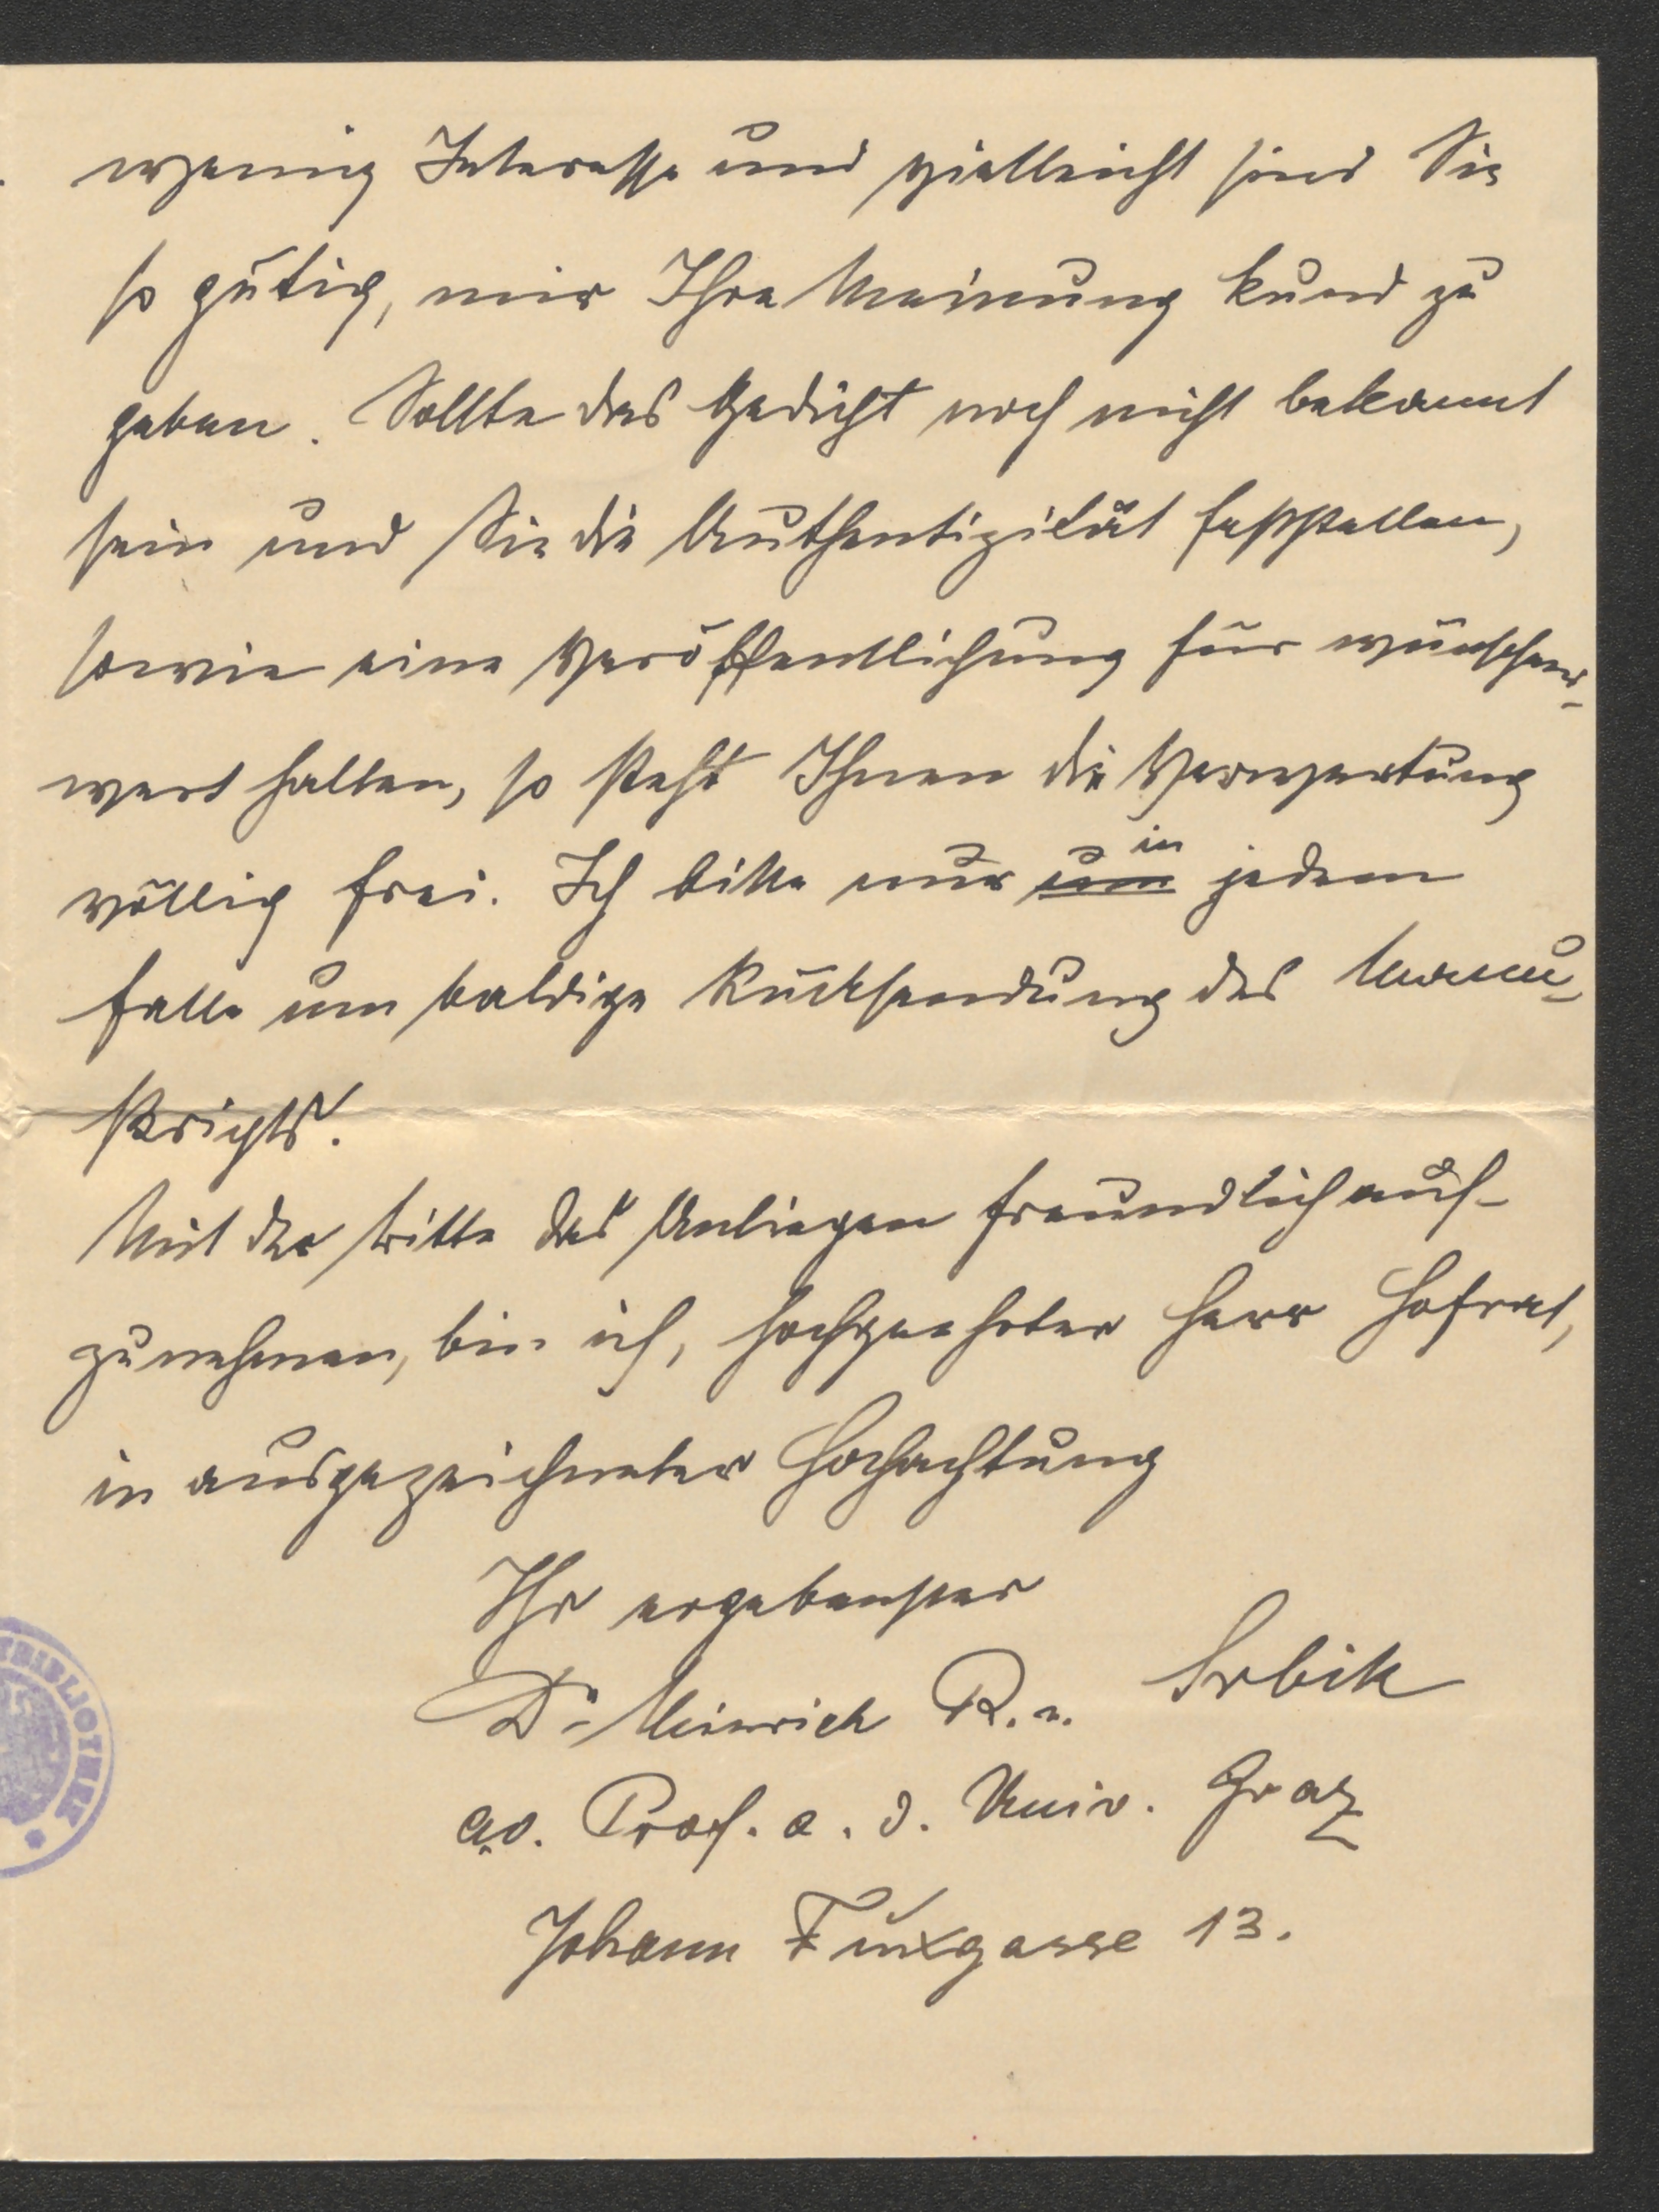 wenig Interesse und vielleicht sind Sie
so gütig, mir Ihre Meinung kund zu
geben. Sollte das Gedicht noch nicht bekannt
sein und Sie die Authentizität feststellen,
sowie eine Veröffentlichung für wünschens-
wert halten, so steht Ihnen die Verwertung
völlig frei. Ich bitte nur um in jedem
Falle um baldige Rücksendung des Manu-
skripts.
Mit der Bitte das Anliegen freundlich auf-
zunehmen, bin ich, hochgeehrter Herr Hofrat,
in ausgezeichneter Hochachtung
Ihr ergebenster
Dr Heinrich R. v. Srbik
ao. Prof. a. d. Univ. Graz
Johann Fuxgasse 13.